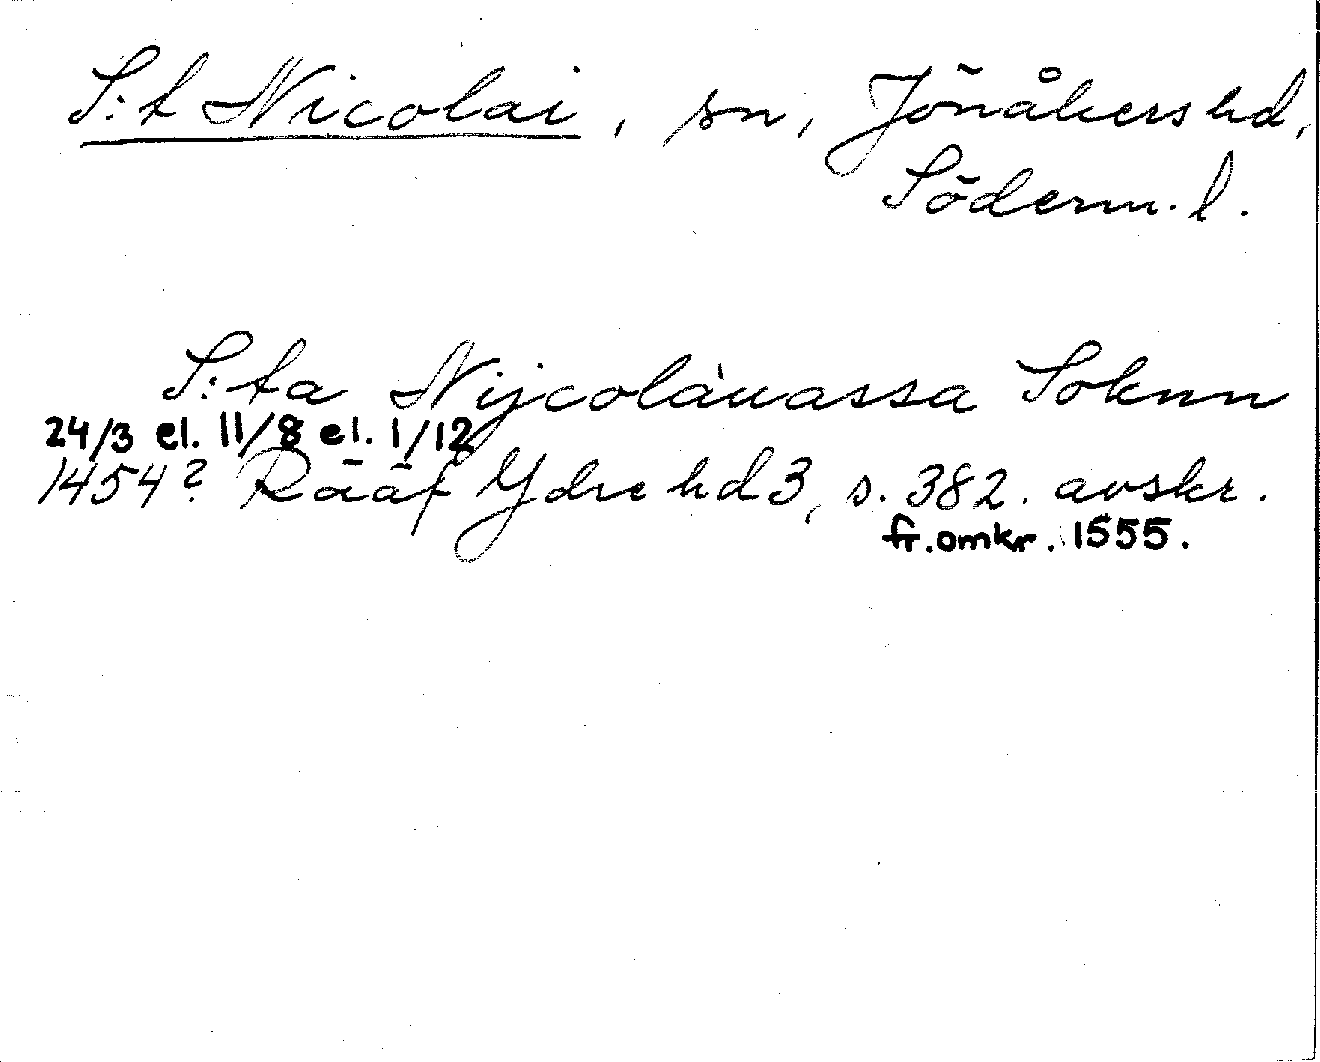 S:t Nicolai, sn, Jönåkers hd,
Söderm. l.
S:ta Nijcolàuassa Soknn
24/3 el. 11/8 el. 1/12
1454? Rääf Ydre hd 3, s. 382. avskr.
fr. omkr. 1555.